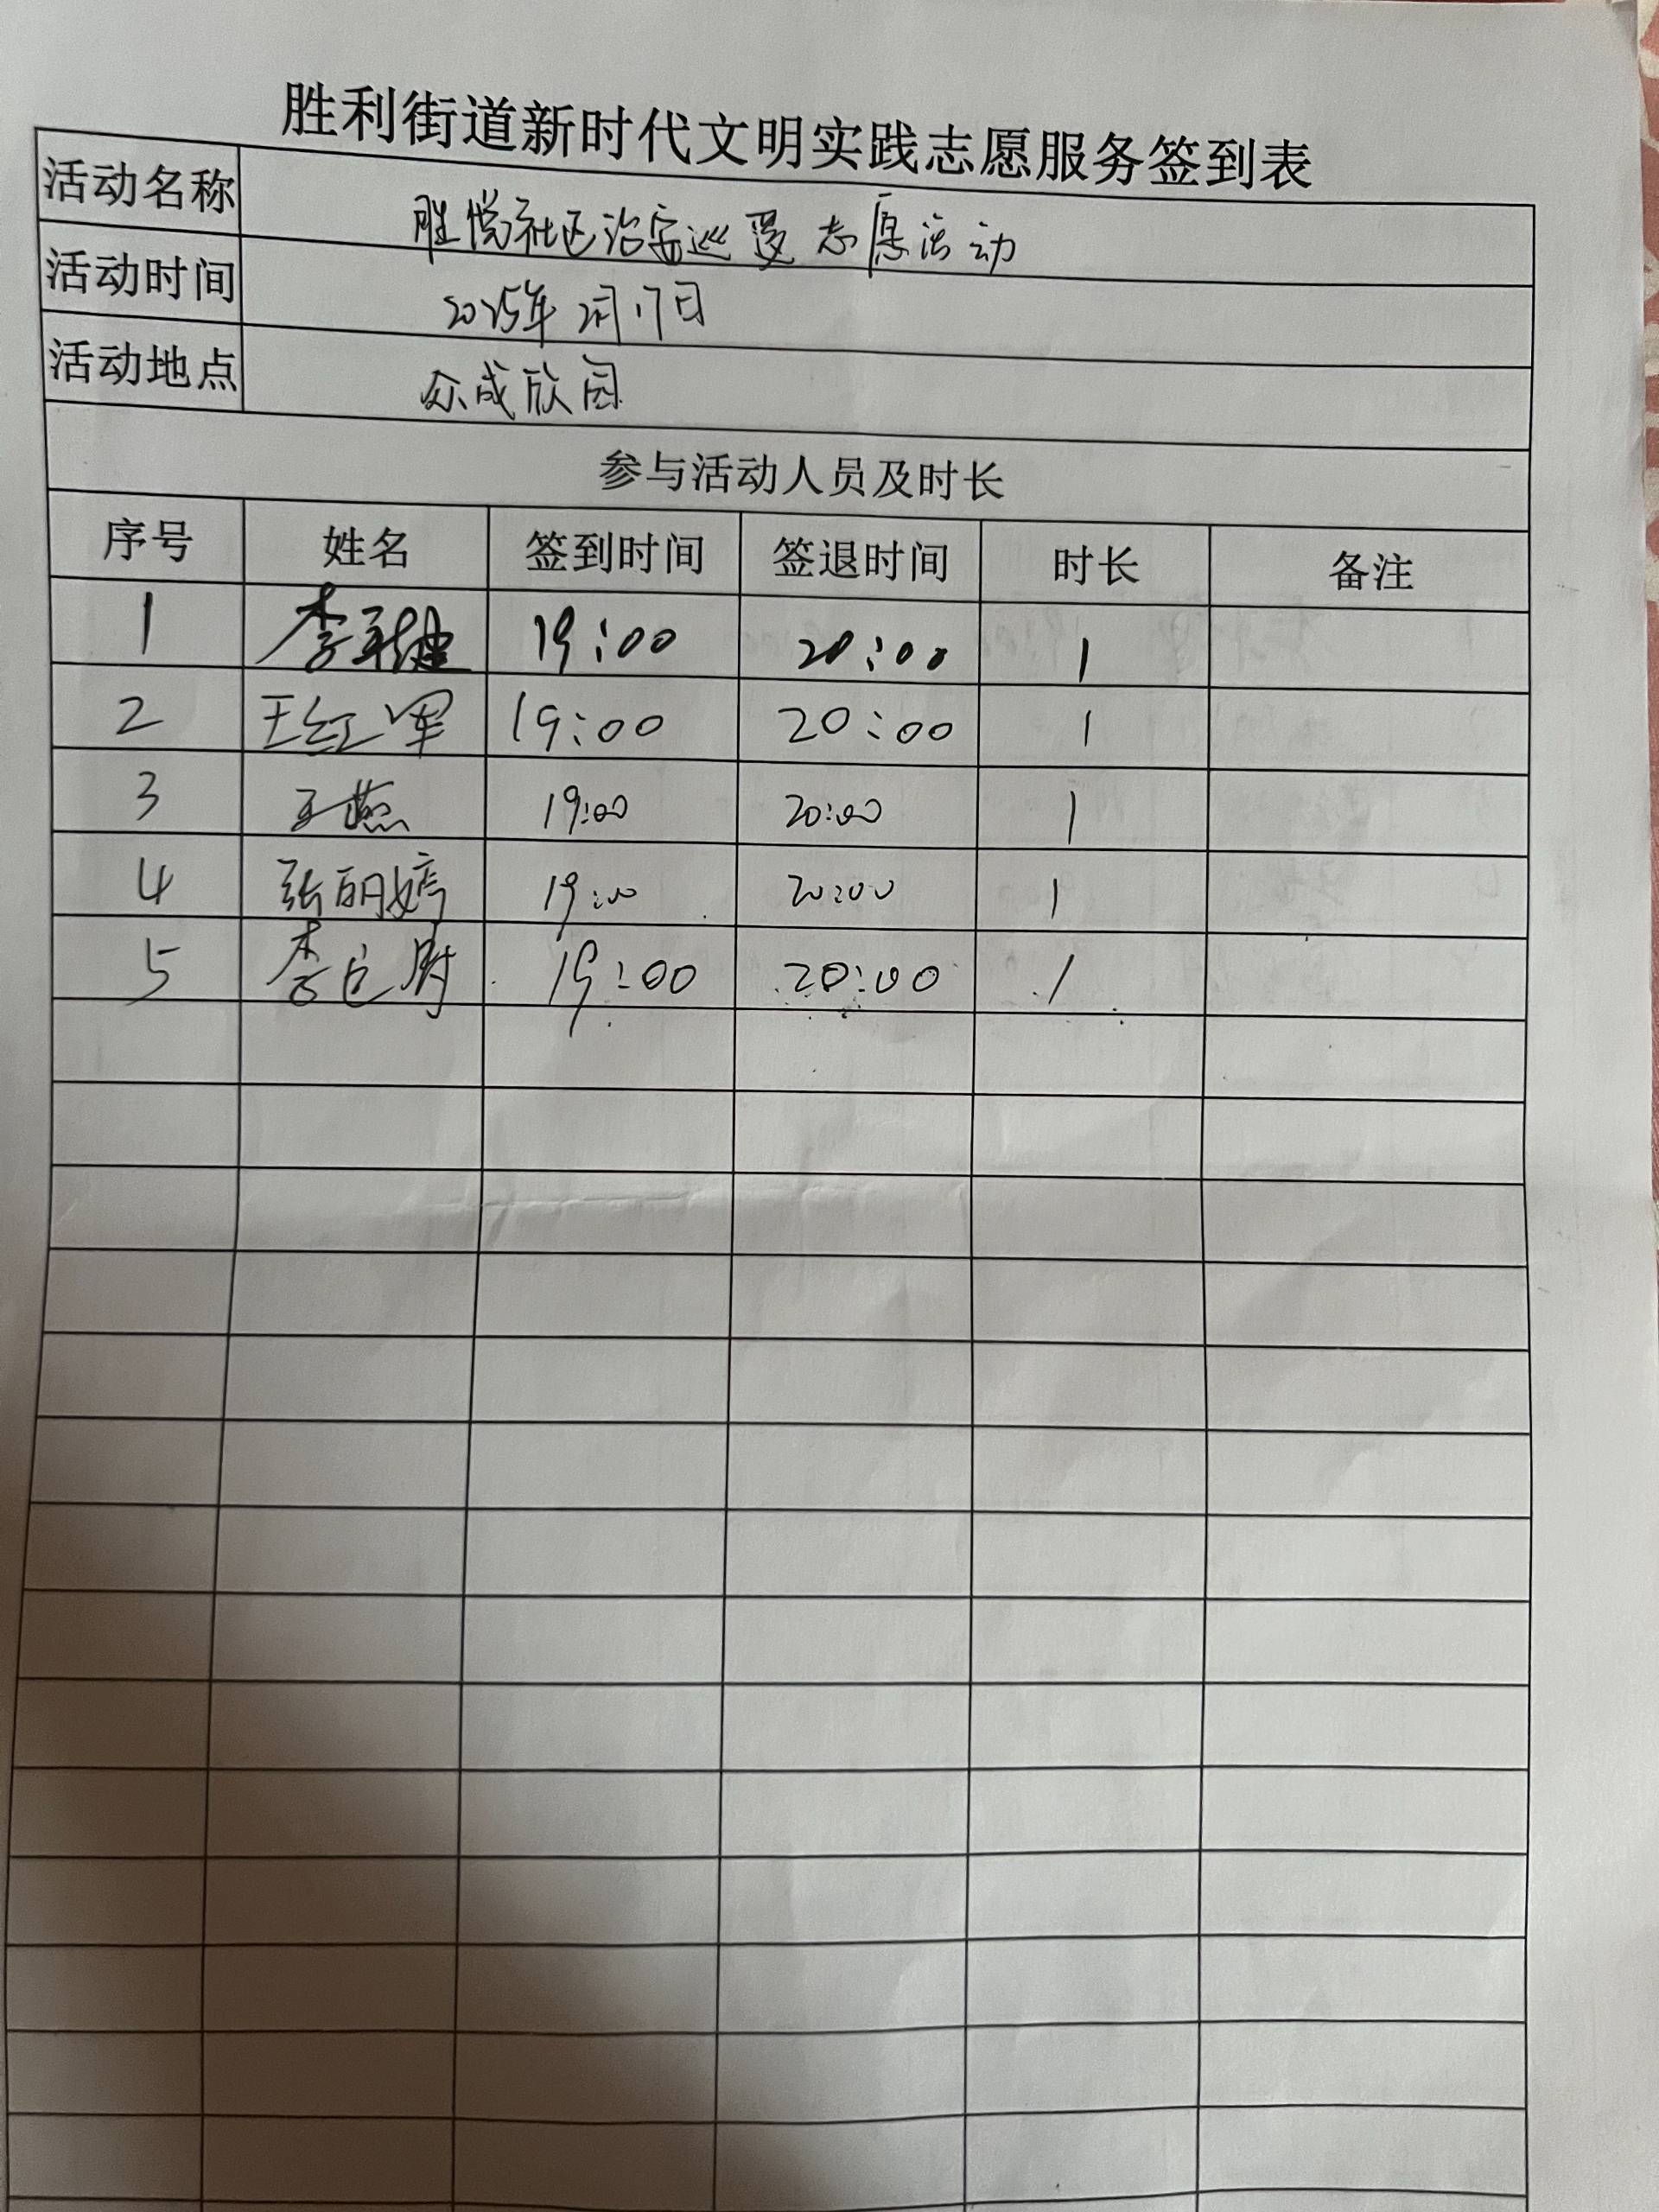 胜利街道新时代文明实践志愿服务签到表
活动名称 胜悦社区治安巡逻志愿活动
活动时间 2025年2月17日
活动地点 众成欣园
参与活动人员及时长
序号 姓名 签到时间 签退时间 时长 备注
1 李 19:00 20:00 1
2 王红军 19:00 20:00 1
3 王燕 19:00 20:00 1
4 张丽婷 19:00 20:00 1
5 李 19:00 20:00 1